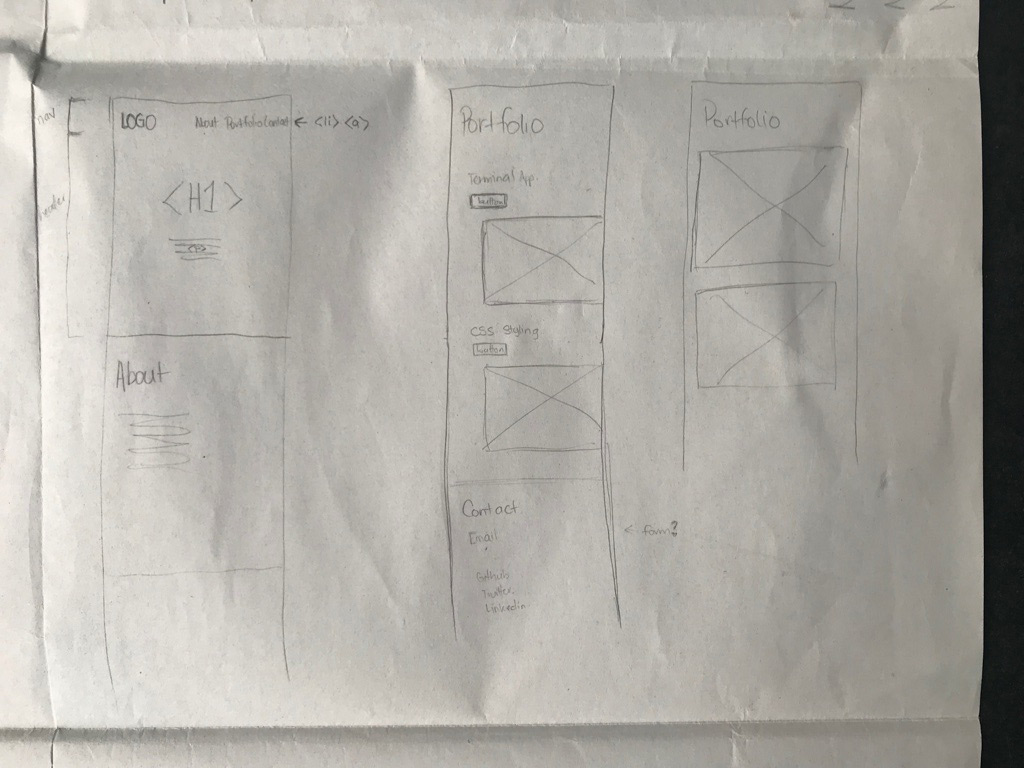 nav
LOGO
About Portfolio Contact ← <li> <a>
header
<H1>
<P>
About
Portfolio
Terminal App
button
CSS Styling
button
Contact
Email
Github
Twitter
Linkedin
← form?
Portfolio